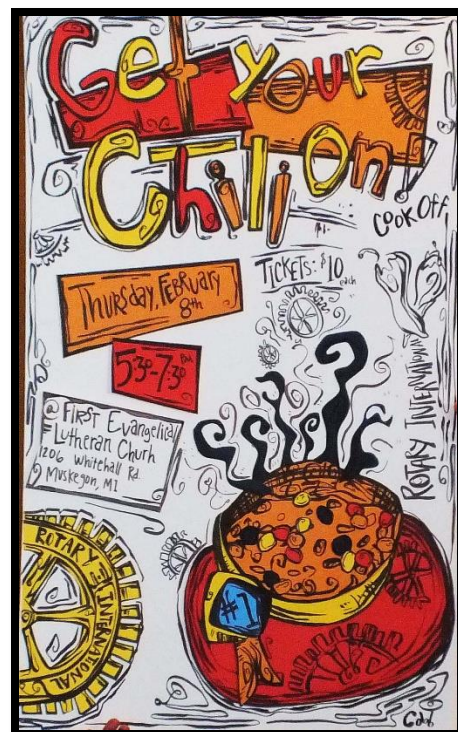 Get your
Chili On!
Cook Off
TICKETS: $10
each
THURSDAY, FEBRUARY
8th
5:30-7:30 PM
@ First Evangelical
Lutheran Churh
1206 Whitehall Rd.
Muskegon, MI
ROTARY INTERNATIONAL
ROTARY INTERNATIONAL
#1